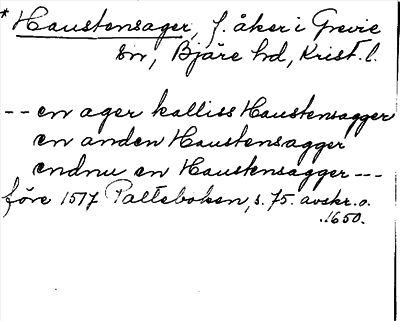 * Haustensager, f. åker i Grevie
sn, Bjäre hd, Krist. l.
-- en ager kalliss Haustensagger
en anden Haustensagger
endnu en Haustensagger ---
före 1517 Palteboken, s. 75. avskr. o.
.1650.